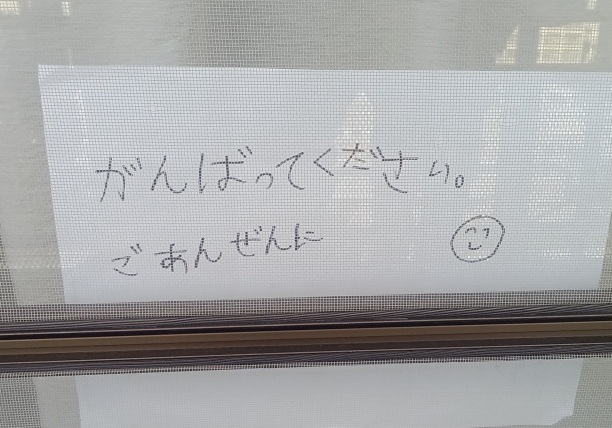 がんばってください。
ごあんぜんに